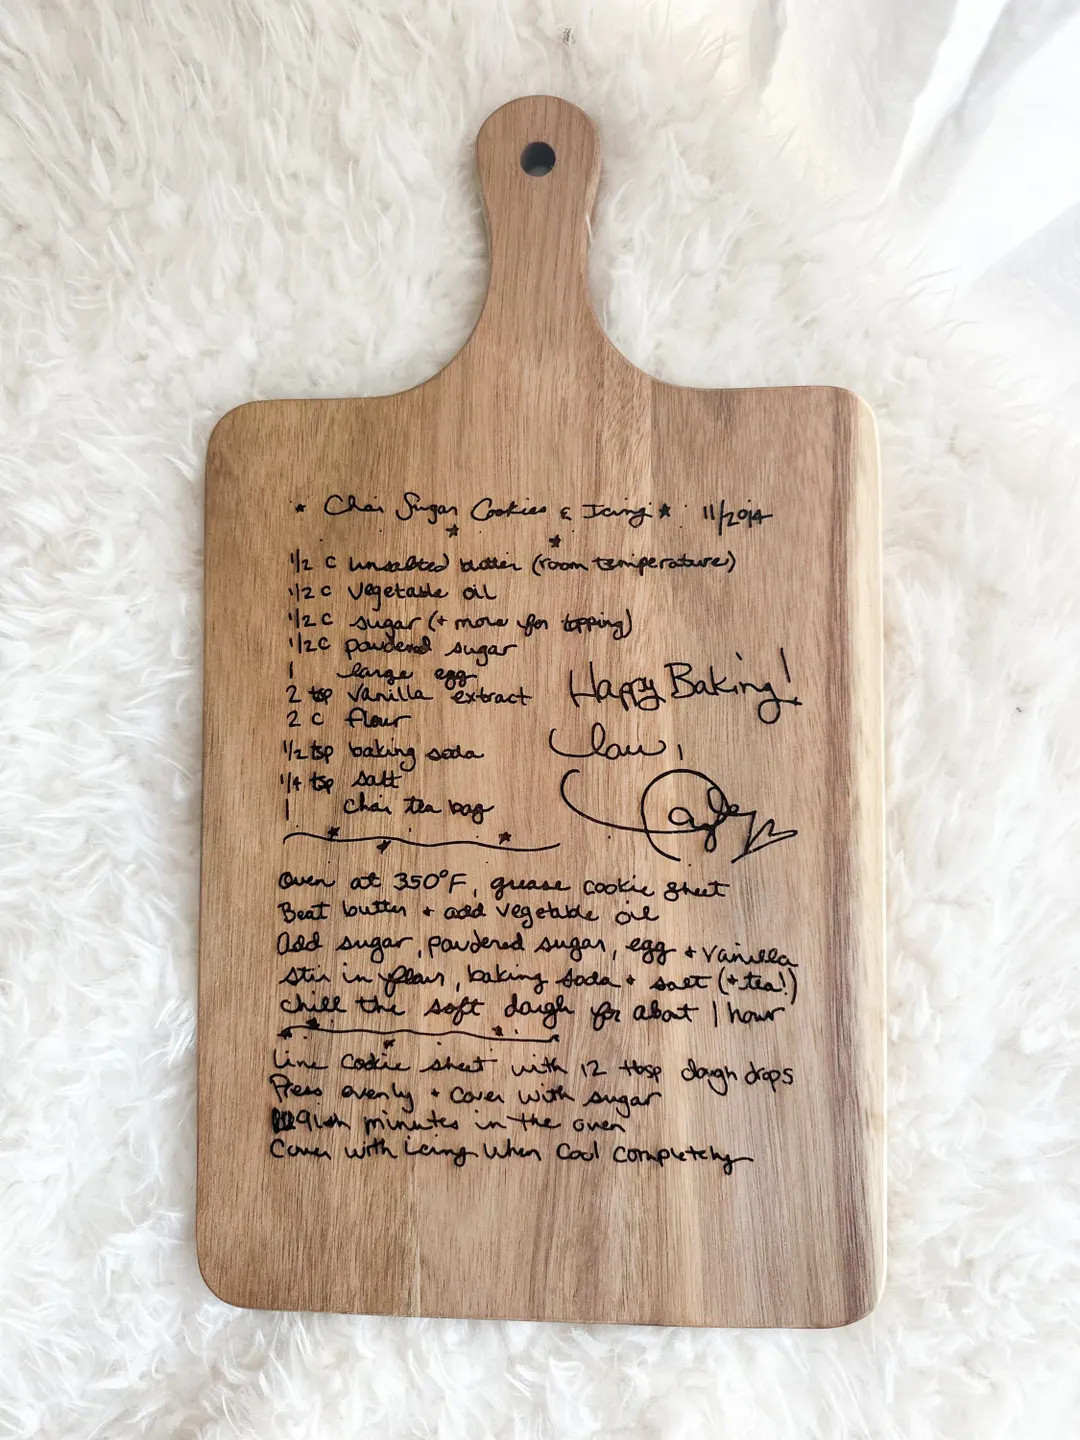 ★ Chai Sugar Cookies & Icing ★ 11/2014
1/2 c unsalted butter (room temperature)
1/2 c vegetable oil
1/2 c sugar (+ more for topping)
1/2 c powdered sugar
1 large egg
2 tsp vanilla extract
2 c flour
1/2 tsp baking soda
1/4 tsp salt
1 chai tea bag
Happy Baking!
Love,
Oven at 350°F, grease cookie sheet
Beat butter + add vegetable oil
Add sugar, powdered sugar, egg + vanilla
stir in flour, baking soda + salt (+ tea!)
chill the soft dough for about 1 hour
Line cookie sheet with 12 tbsp dough drops
Press evenly + cover with sugar
9ish minutes in the oven
Cover with icing when cool completely